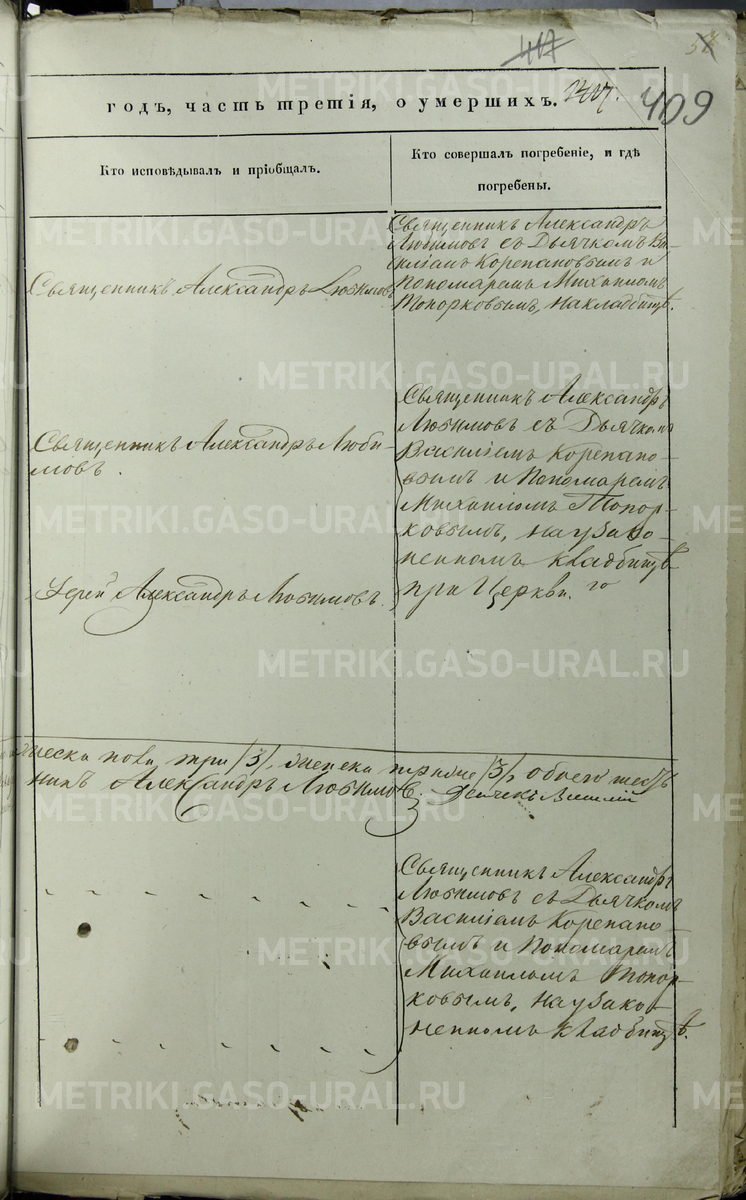 417
409
годъ, часть третія, о умершихъ.
Кто исповѣдывалъ и пріобщалъ.
Кто совершалъ погребеніе, и гдѣ
погребены.
Священникъ Александръ
Любимовъ съ Дьячкомъ Ва-
силіемъ Корепановымъ и
Пономаремъ Михаиломъ
Топорковымъ, на кладбищѣ.
Священникъ Александръ Любимовъ
Священникъ Александръ
Любимовъ съ Дьячкомъ
Василіемъ Корепано-
вымъ и Пономаремъ
Михаиломъ Топор-
ковымъ, на узако-
ненномъ кладбищѣ
при Церкви.
Священникъ Александръ Люби-
мовъ.
Іерей Александръ Любимовъ.
пола три /3/, женска /3/, обоего шесть
никъ Александръ Любимовъ. Дьячекъ Василій
Священникъ Александръ
Любимовъ съ Дьячкомъ
Василіемъ Корепано-
вымъ и Пономаремъ
Михаиломъ Топор-
ковымъ, на узако-
ненномъ кладбищѣ.
METRIKI.GASO-URAL.RU